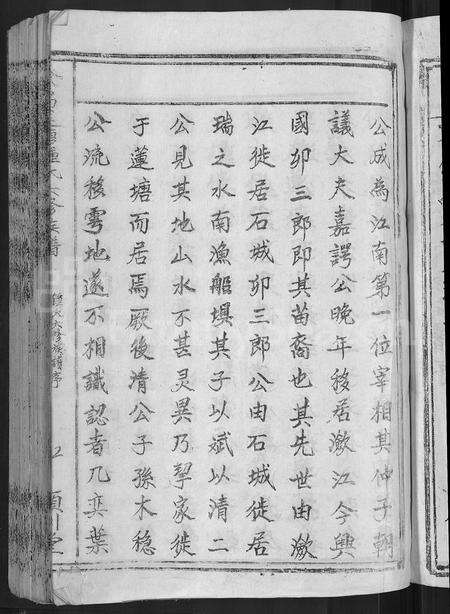 公成為江南第一位宰相其仲子朝
議大夫嘉諤公晚年移居瀲江今興
國卯三郎即其苗裔也其先世由瀲
江徙居石城卯三郎公由石城徙居
瑞之水南漁船塤其子以斌以清二
公見其地山水不甚灵異乃挈家徙
于蓮塘而居焉厥後清公子孫木稳
公流移雩地遂不相識認者几奕葉
鍾氏六修族譜序
潁川堂